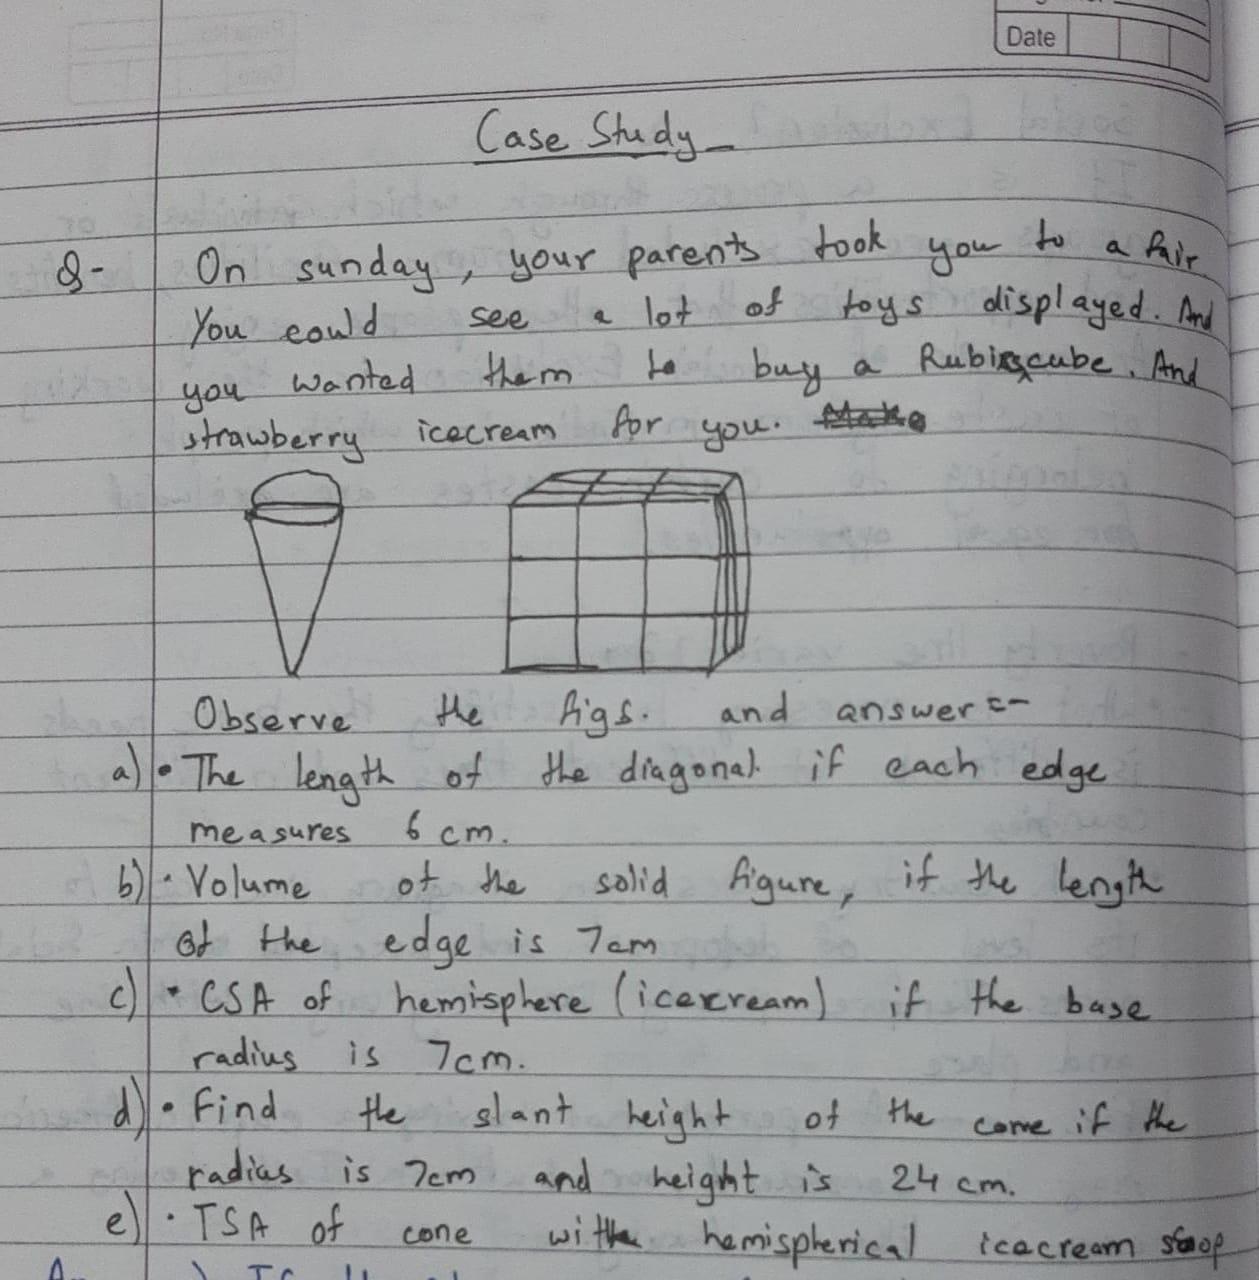 Date
Case Study
Q- On sunday, your parents took you to a fair
You could see a lot of toys displayed. And
you wanted them to buy a Rubikscube. And
strawberry icecream for you.
Observe the figs. and answer :-
a) • The length of the diagonal if each edge
measures 6 cm.
b) • Volume of the solid figure, if the length
of the edge is 7cm
c) • CSA of hemisphere (icecream) if the base
radius is 7cm.
d) • Find the slant height of the cone if the
radius is 7cm and height is 24 cm.
e) • TSA of cone with hemispherical icecream scoop